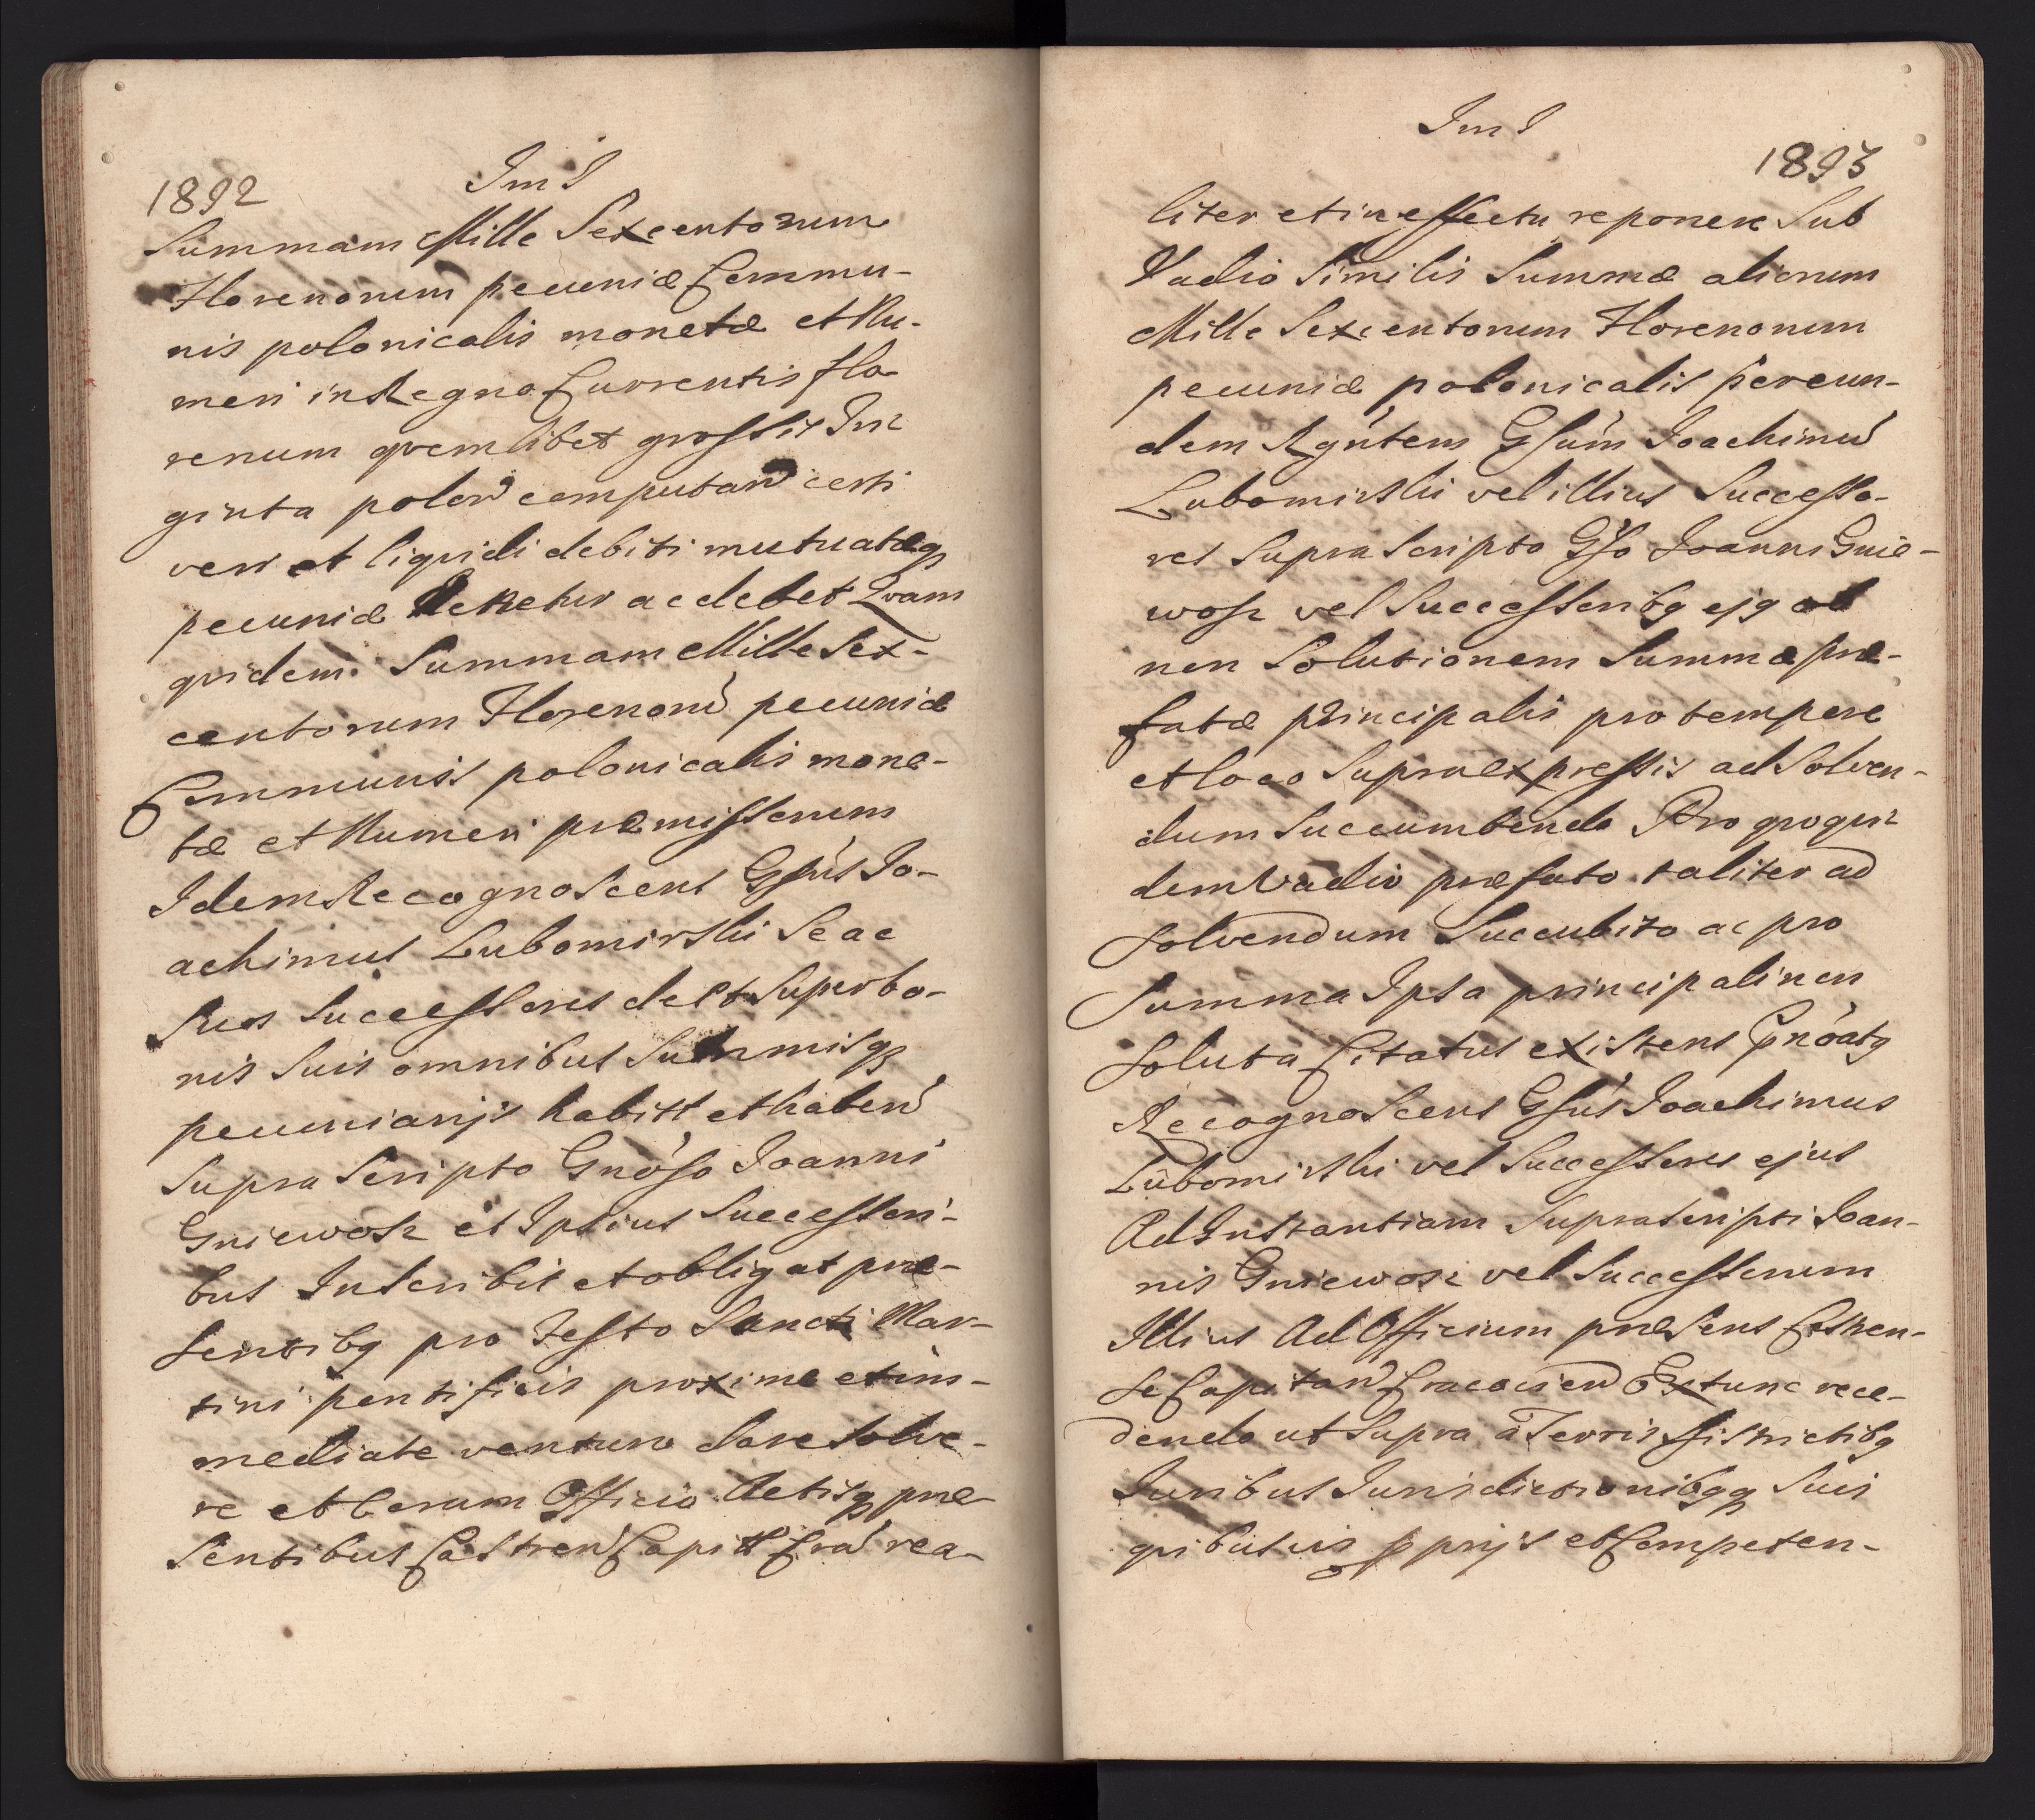 1892
Im I
Summam Mille Sexcentorum
Florenorum pecuniæ Commu-
nis polonicalis monetæ et Nu-
meri in Regno Currentis flo-
renum qvemlibet grossis Tri-
ginta polon computan certi
veri et liqvidi debiti mutuatæq3
pecuniæ tenetur ac debet Qvam
qvidem Summam Mille Sex-
centorum Florenorũ pecuniæ
Communis polonicalis mone-
tæ et Numeri præmissorum
Idem Recognoscens Gsus Jo-
achimus Lubomirski Se ac
Suos Successores de et Super bo-
nis Suis omnibus Summisq3
pecuniarijs habitt et haben
Supra Scripto Gnoso Joanni
Gniewosz et Ipsius Successori-
bus Inscribit et obligat præ-
sentibq pro Festo Sancti Mar-
tini pontificis proxime et im-
mediate venturo dare Solve-
re et Coram Officio Actisq3 præ-
sentibus Castren Capitt Cra rea-
Im I
1893
liter et in effectu reponere Sub
Vadio Similis Summæ aliorum
Mille Sexcentorum Florenorum
pecuniæ polonicalis per eun-
dem Rgntem Gsum Joachimũ
Lubomirski vel illius Successo-
res Supra Scripto Gso Joanni Gnie-
wosz vel Successoribq ejq ob
non Solutionem Summæ præ-
fatæ principalis pro tempore
et loco Supraexpressis ad Solven-
dum Succumbendo Pro qvoqvi-
dem Vadio præfato taliter ad
Solvendum Succubito ac pro
Summa Ipsa principali non
Soluta Citatus existens Gnoatq
Recognoscens Gsus Joachimus
Lubomirski vel Successores ejus
Ad Instantiam Suprascripti Joan-
nis Gniewosz vel Successorum
Illius Ad Officium præsens Castren-
se Capitan Cracovien Extunc rece-
dendo ut Supra a Terris Districtibq
Juribus Jurisdictionibqq3 Suis
qvibusvis pprijs et Competen-